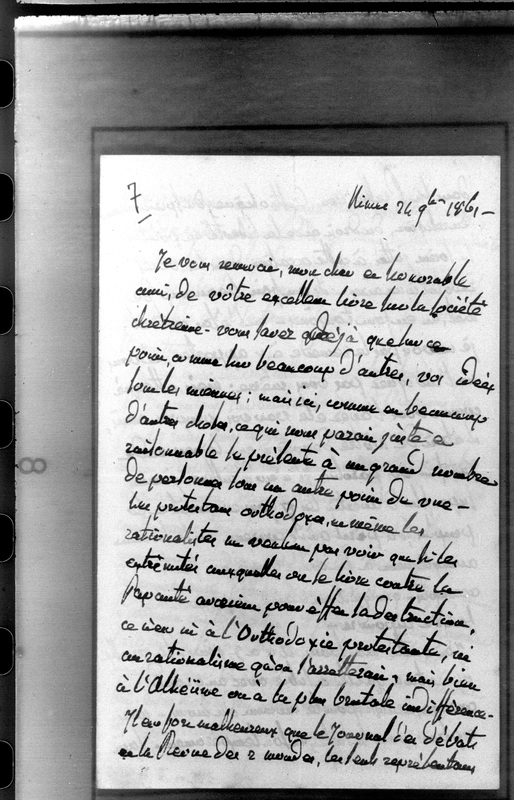 7
Nimes 24 9bre 1861 -
Je vous remercie, mon cher et honorable
ami, de vôtre excellent livre sur la société
chrétienne - vous savez déjà que sur ce
point, comme sur beaucoup d'autres, vos idées
sont les miennes ; mais ici, comme en beaucoup
d'autres choses, ce qui nous parait juste et
raisonnable se présente à un grand nombre
de personnes sous un autre point de vue -
Les protestans orthodoxes, ni même les
rationalistes ne veulent pas voir que si les
extrémités auxquelles on se livre contre la
Papauté avaient pour effet la destruction,
ce n'est ni à l'Orthodoxie protestante, ni
au rationalisme qu'on s'arrêtterait, mais bien
à l'Athéisme ou à la plus brutale indifférence -
Il est fort malheureux que le Journal des débats
et la Revue des 2 mondes, les seuls représentans